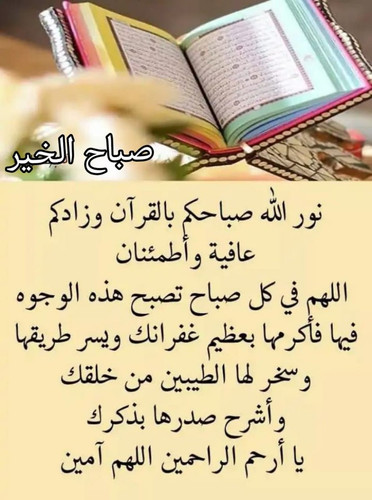 صباح الخير
نور الله صباحكم بالقرآن وزادكم
عافية وأطمئنان
اللهم في كل صباح تصبح هذه الوجوه
فيها فأكرمها بعظيم غفرانك ويسر طريقها
وسخر لها الطيبين من خلقك
وأشرح صدرها بذكرك
يا أرحم الراحمين اللهم آمين